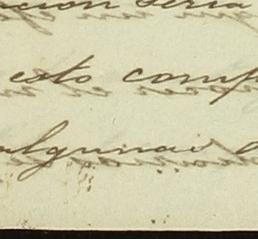 ción seria
esto comp
algunas